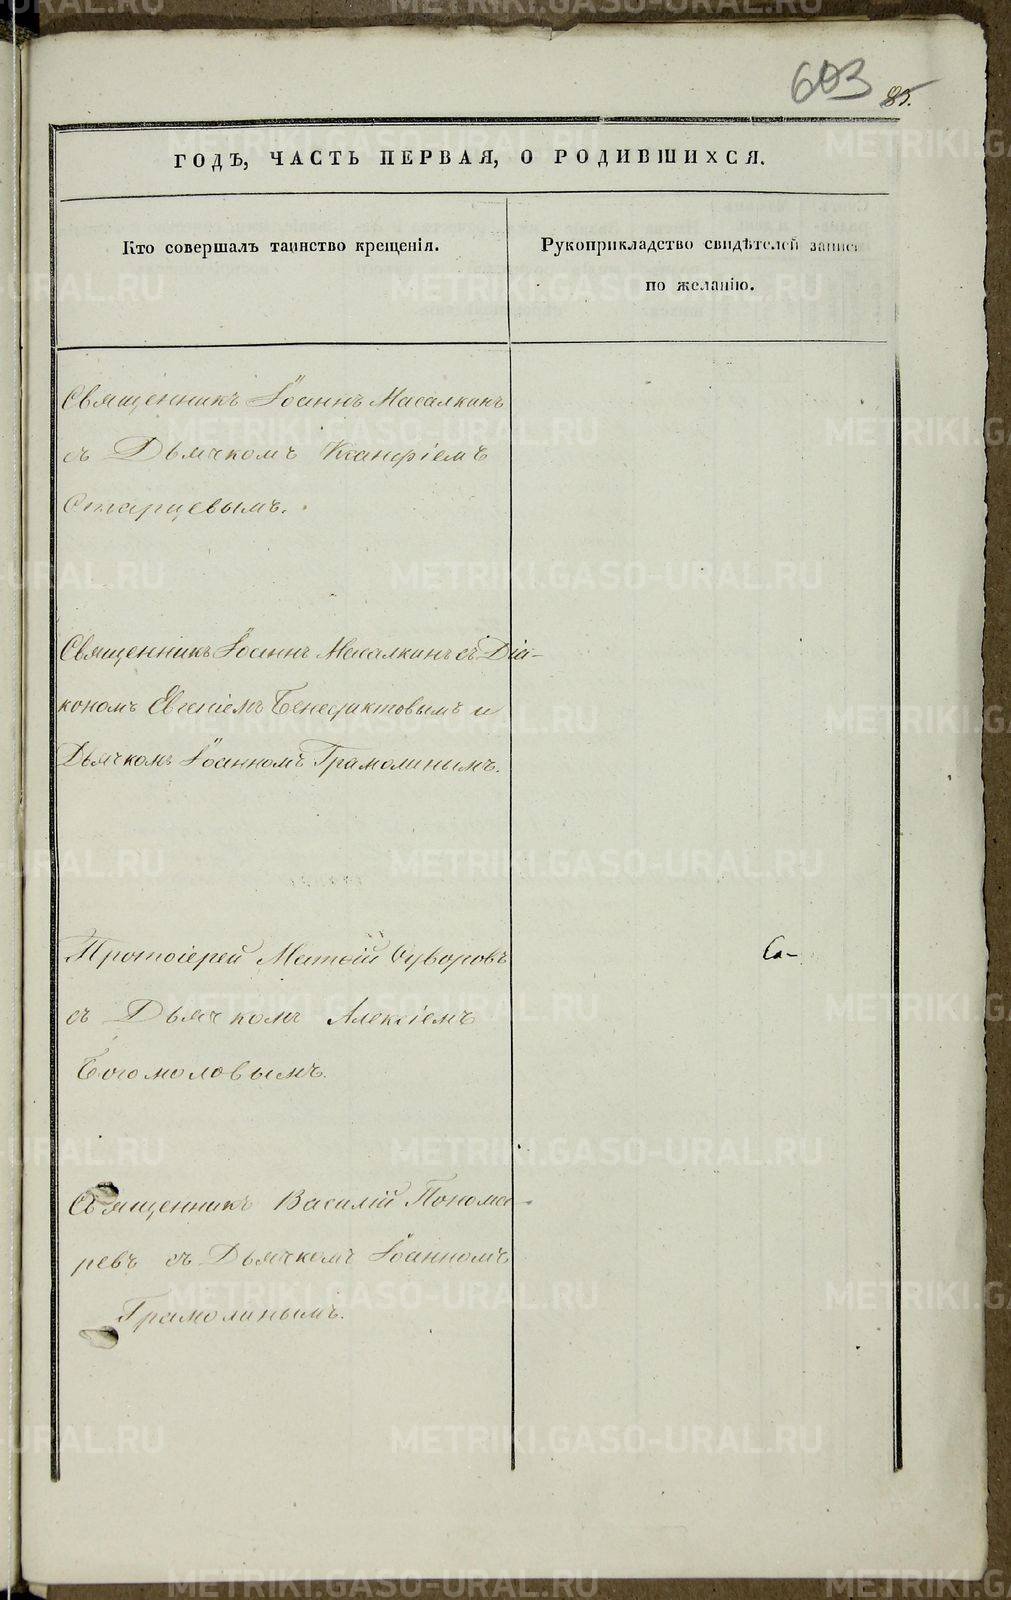 603 85.
ГОДЪ, ЧАСТЬ ПЕРВАЯ, О РОДИВШИХСЯ.
Кто совершалъ таинство крещенія.
Рукоприкладство свидѣтелей записи
по желанію.
Священникъ Іоаннъ Масалкинъ
съ Дьячкомъ Ксанфіемъ
Старцевымъ.
Священникъ Іоаннъ Масалкинъ съ Діа-
кономъ Евгеніемъ Бенедиктовымъ и
Дьячкомъ Іоанномъ Грамолинымъ.
Протоіерей Матѳій Суворовъ
съ Дьячкомъ Алексіемъ
Богомоловымъ.
Са-
Священникъ Василій Понома-
ревъ съ Дьячкомъ Іоанномъ
Грамолинымъ.
METRIKI.GASO-URAL.RU